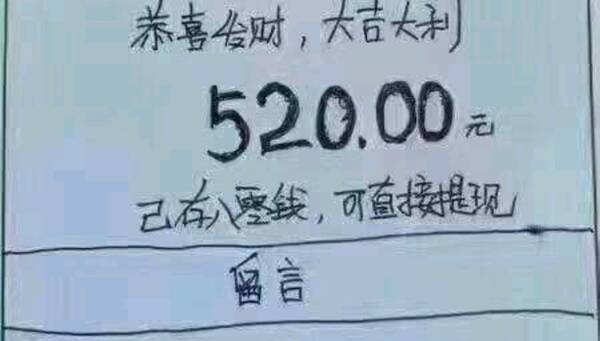 恭喜发财，大吉大利
520.00元
己存入零钱，可直接提现
留言